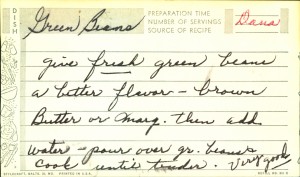 DISH
Green Beans
PREPARATION TIME
NUMBER OF SERVINGS
SOURCE OF RECIPE
Dana
give fresh green beans
a better flavor - brown
Butter or marg. then add
water - pour over gr. beans
cook until tender. Very good
PRINTED IN U.S.A.